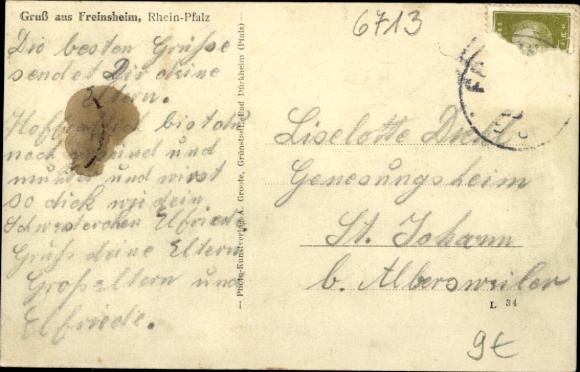 Gruß aus Freinsheim, Rhein-Pfalz
6713
Die besten Grüsse
sendet Dir deine
Eltern.
bist du
noch und
munter und wirst
so dick wie dein
Schwesterchen Elfriede
Gruß deine Eltern
Großeltern und
Elfriede.
— Photo-Kunstverlag A. Groote, Grünstadt-Bad Dürkheim (Pfalz) —
Liselotte
Genesungsheim
St. Johann
b. Albersweiler
L 34
9€